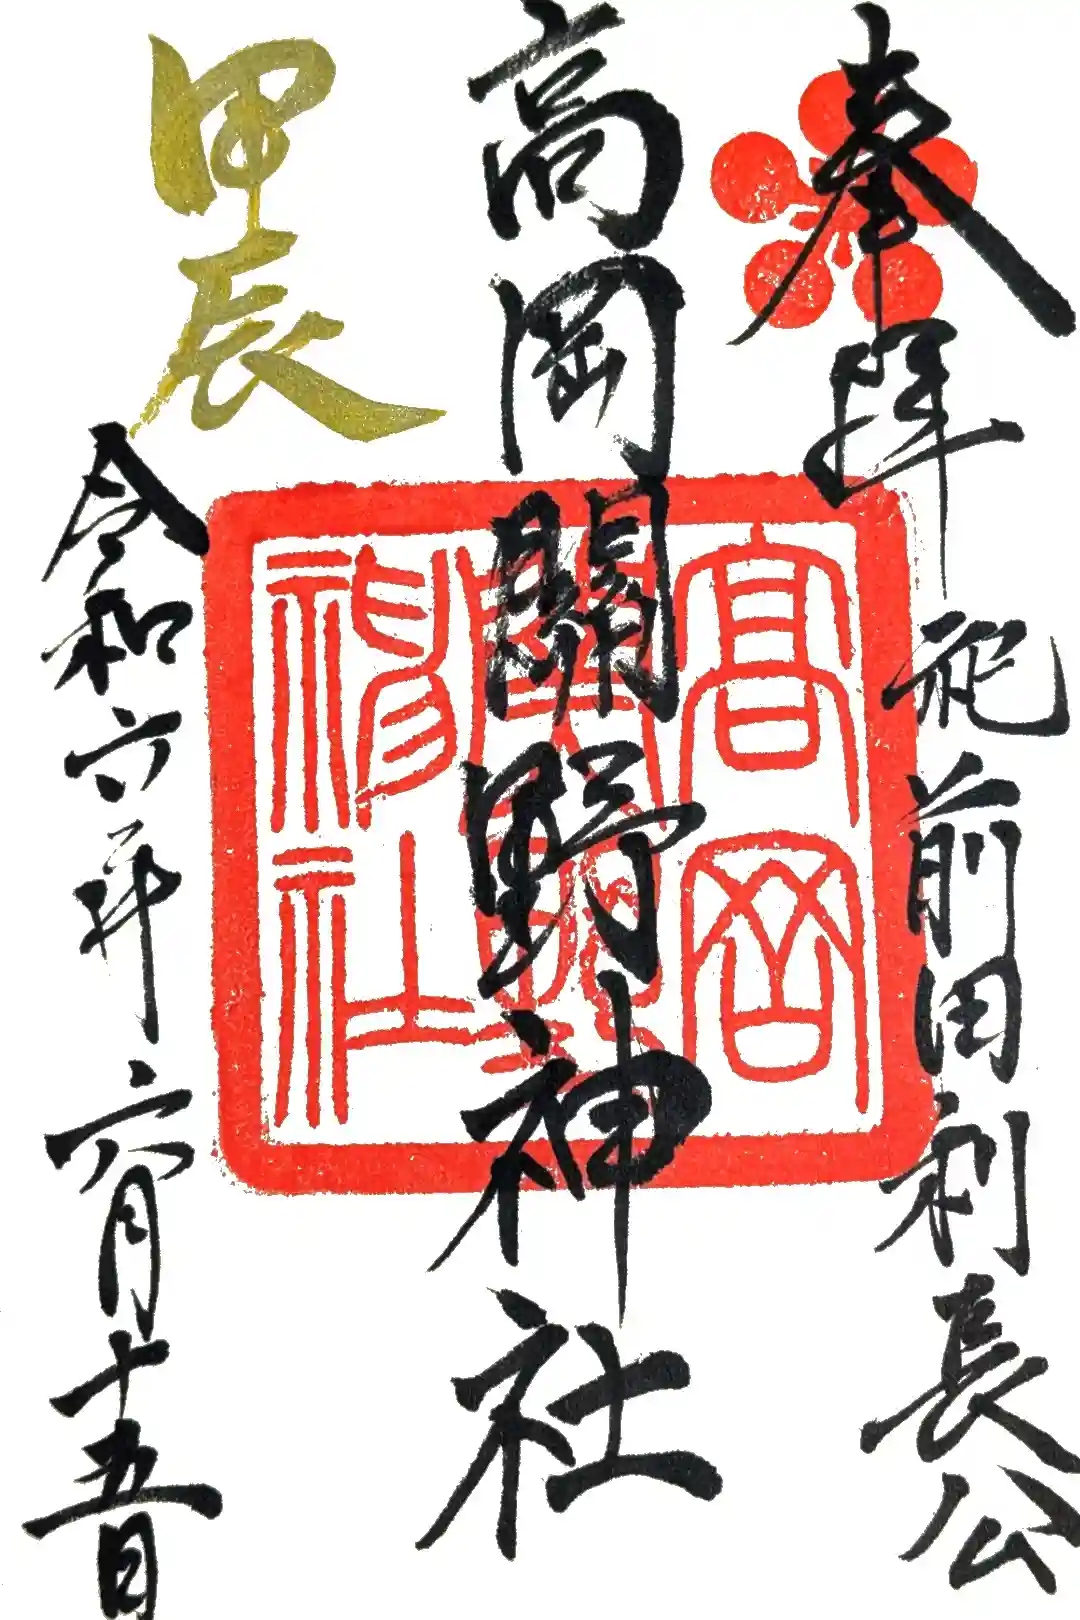 奉拝
祀前田利長公
高岡關野神社
高岡
神社
甲辰
令和六年六月十五日